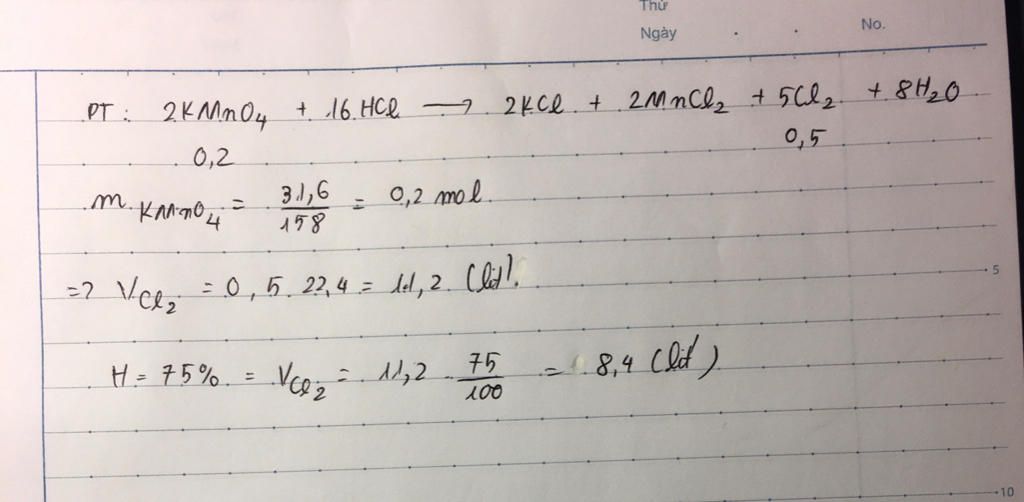 Thứ
Ngày . . No.
PT: 2KMnO₄ + 16HCl ⟶ 2KCl + 2MnCl₂ + 5Cl₂ + 8H₂O
0,2 0,5
n KMnO₄ = 31,6/158 = 0,2 mol.
=> V Cl₂ = 0,5.22,4 = 11,2 (lít).
H = 75% = V Cl₂ = 11,2 . 75/100 = 8,4 (lít)
5
10